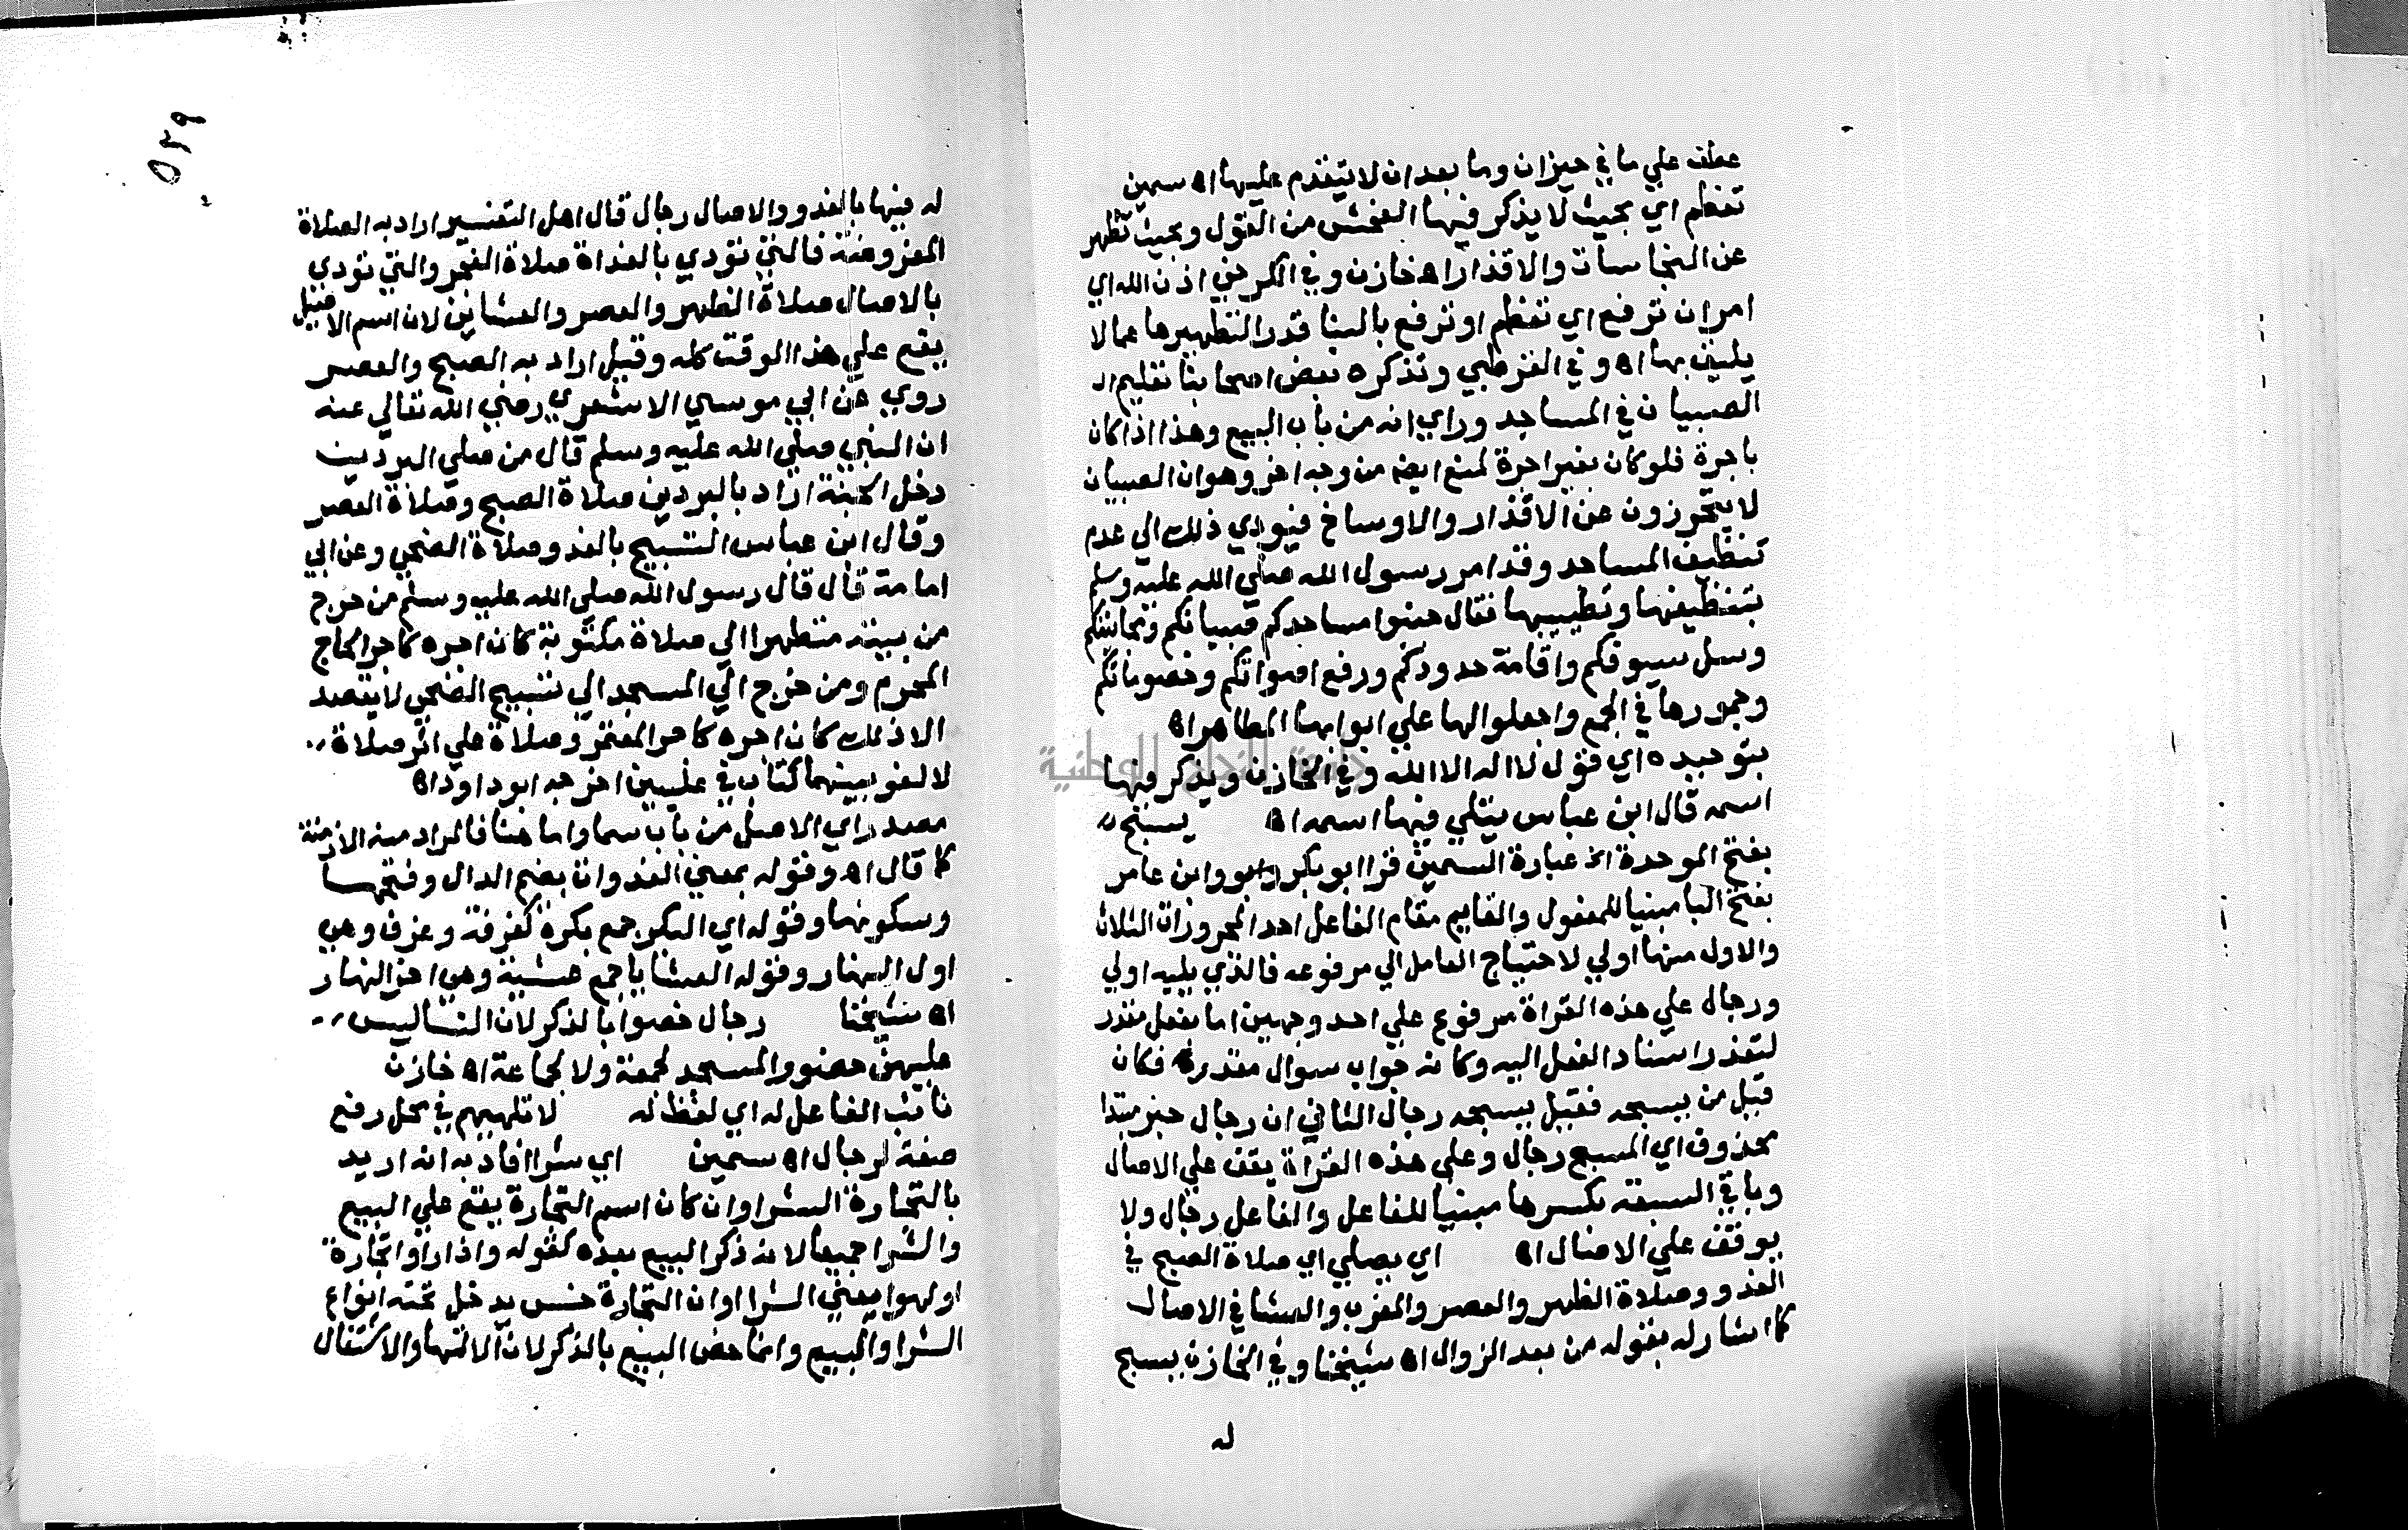 عطف علي ما في حيزان وما بعد ان لا يتقدم عليها اه سمين
تعظم اي بحيث لا يذكر فيها الفحش من القول وبحيث تطهر
عن النجاسات والاقذار اه خازن وفي الكرخي اذن الله اي
امر ان ترفع اي تعظم او ترفع بالبنا قدرا لتطهيرها عما لا
يليق بها اه وفي القرطبي وتذكره بعض اصحابنا تعليم الـ
الصبيان في المساجد وراي انه من باب البيع وهذا اذا كان
باجرة فلو كان بغير اجرة لمنع ايضا من وجه اخر وهو ان الصبيان
لا يتحرزون عن الاقذار والاوساخ فيودي ذلك الي عدم
تنظيف المساجد وقد امر رسول الله صلي الله عليه وسلم
بتنظيفها وتطييبها فقال جنبوا مساجدكم صبيانكم ومجانينكم
وسل سيوفكم واقامة حدودكم ورفع اصواتكم وخصوماتكم
وجمروها في الجمع واجعلوا لها علي ابوابها المطاهر اه
بتوحيده اي قول لا اله الا الله وفي الخازن ويذكر فيها
اسمه قال ابن عباس يتلي فيها اسمه اه يسبح
بفتح الموحدة الخ عبارة السمين قرا ابو بكر وابن عامر
بفتح البا مبنيا للمفعول والقايم مقام الفاعل احد المجرورات الثلاث
والاول منها اولي لاحتياج العامل الي مرفوعه فالذي يليه اولي
ورجال علي هذه القراة مرفوع علي احد وجهين اما بفعل مقدر
لتعذر اسناد الفعل اليه وكانه جواب سوال مقدر فكان
قيل من يسبحه فقيل يسبحه رجال الثاني ان رجال خبر مبتدا
محذوف اي المسبح رجال وعلي هذه القراة يقف علي الاصال
وباقي السبعة بكسرها مبنيا للفاعل والفاعل رجال ولا
يوقف علي الاصال اه اي يصلي اي صلاة الصبح في
الغدو وصلاة الظهر والعصر والمغرب والعشا في الاصال
كما اشار له بقوله من بعد الزوال اه شيخنا وفي الخازن يسبح
له
٥٣٩
له فيها بالغدو والاصال رجال قال اهل التفسير اراد به الصلاة
المفروضة فالتي تودي بالغداة صلاة الفجر والتي تودي
بالاصال صلاة الظهر والعصر والعشاين لان اسم الاصيل
يقع علي هذا الوقت كله وقيل اراد به الصبح والعصر
روي عن ابي موسي الاشعري رضي الله تعالي عنه
ان النبي صلي الله عليه وسلم قال من صلي البردين
دخل الجنة اراد بالبردين صلاة الصبح وصلاة العصر
وقال ابن عباس التسبيح بالغدو صلاة الضحي وعن ابي
امامة قال قال رسول الله صلي الله عليه وسلم من خرج
من بيته متطهرا الي صلاة مكتوبة كان اجره كاجر الحاج
المحرم ومن خرج الي المسجد الي تسبيح الضحي لا يقصد
الا ذلك كان اجره كاجر المعتمر وصلاة علي اثر صلاة
لا لغو بينهما كتاب في عليين اخرجه ابو داود اه
مصدر اي الاصل من باب سما واما هنا فالمراد منه الازمنة
كما قال اه وقوله بمعني الغدوات بضم الدال وفتحها
وسكونها وقوله اي البكر جمع بكرة كغرفة وغرف وهي
اول النهار وقوله العشايا جمع عشية وهي اخر النهار
اه شيخنا رجال خصوا بالذكر لان النسا ليس
عليهن حضور المسجد لجمعة ولا لجماعة اه خازن
نائب الفاعل له اي لفظ له لا تلهيهم في محل رفع
صفة لرجال اه سمين اي شرا افاد به انه اريد
بالتجارة الشرا وان كان اسم التجارة يقع علي البيع
والشرا جميعا لانه ذكر البيع بعده كقوله واذا راوا تجارة
او لهوا يعني الشرا او ان التجارة جنس يدخل تحته انواع
الشرا والبيع وانما خص البيع بالذكر لان الالتها والاشتغال